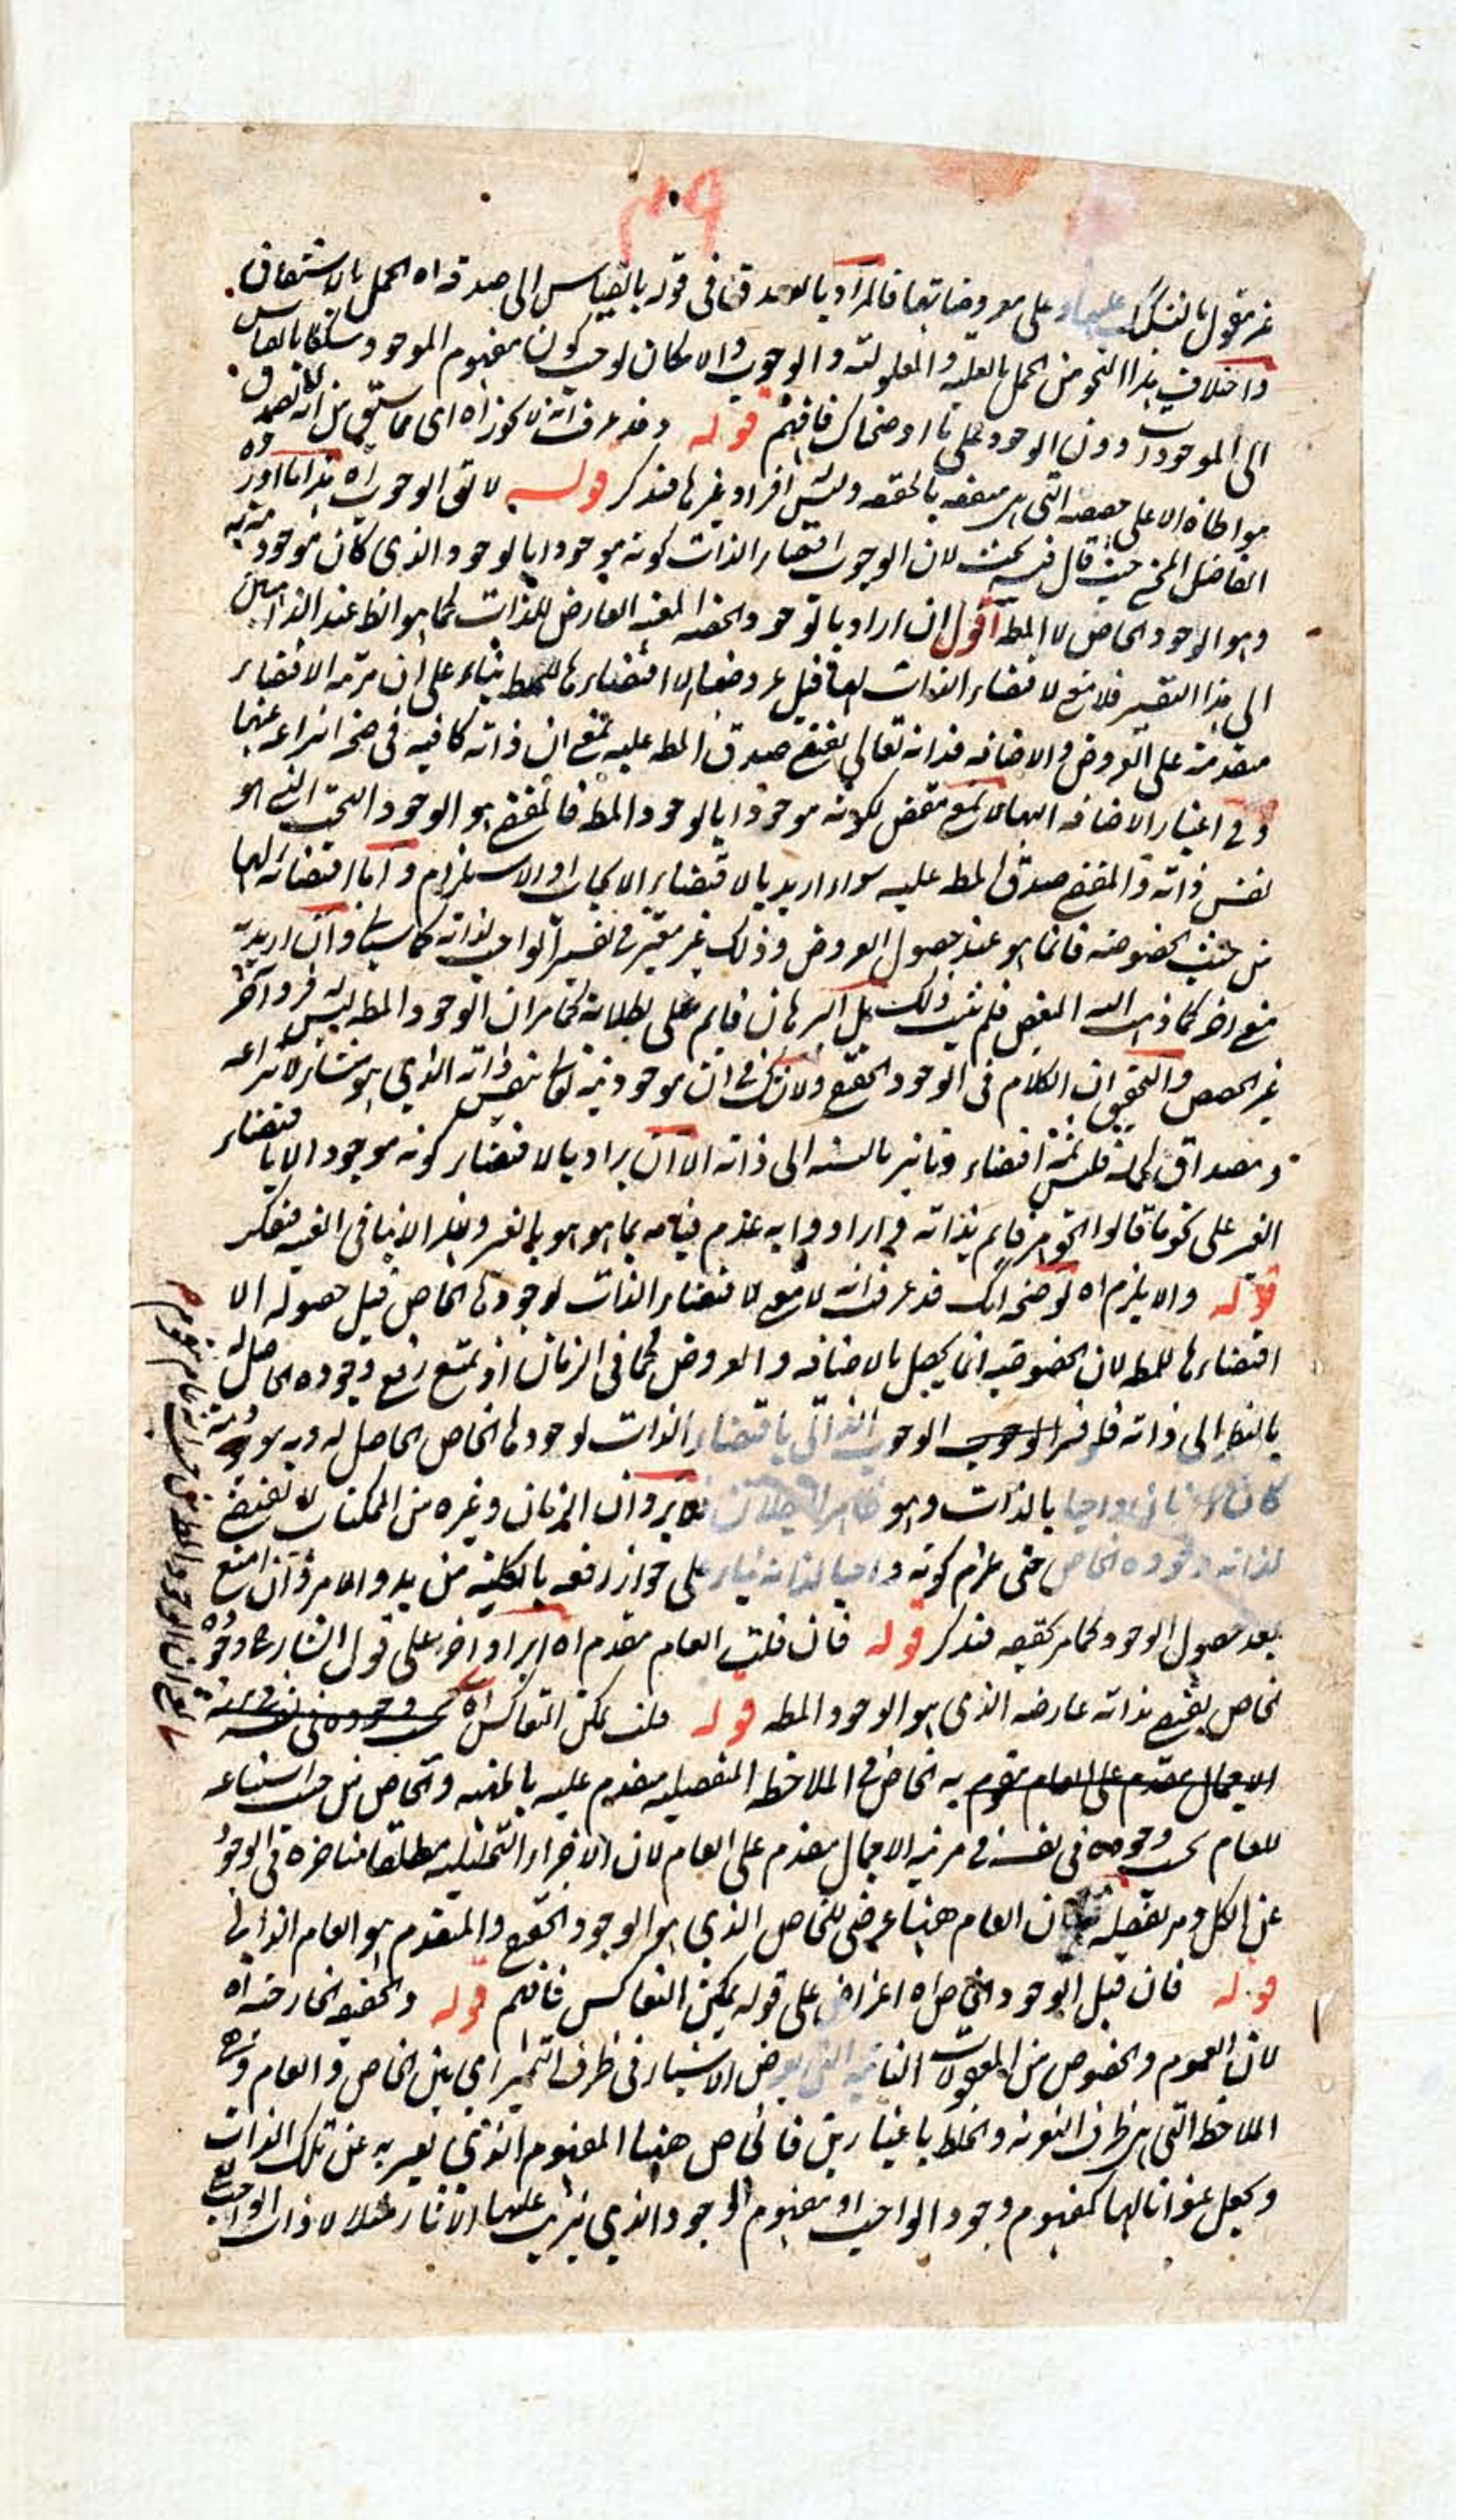 ۳۹
غير مقول بالتشكيك عليها و على معروضاتها فالمراد بالصدق في قوله بالقياس الى صدقه اه الحمل بالاشتقاق
واختلاف هذا النحو من الحمل بالعلية والمعلولية والوجوب والامكان يوجب كون مفهوم الموجود مشككا بالقياس
الى الموجودات دون الوجود على ما اوضحناك فافهم قوله وقد عرفت انه لا يجوز اه اى مما سبق من انه لا يصدق
مواطاة الا على حصصه التى هى متفقه بالحقيقه وليس افراد غيرها فتذكر قوله لا نق الوجوب اه هذا ما اورده
الفاضل المخ حيث قال فيه بحث لان الوجوب اقتضاء الذات كونه موجودا بالوجود الذى كان موجوديته به
وهو الوجود الخاص لا المط اقول ان اراد بالوجود الخاص المعنى العارض للذات كما هو الظ عند الذاهبين
الى هذا التفسير فلا منع لاقتضاء الذات لها قبل عروضها الا اقتضاءها للمط بناء على ان مرتبه الاقتضاء
متقدمة على العروض والاضافه فذاته تعالى يقتضى صدق المط عليه بمعنى ان ذاته كافيه فى صحه انتزاعه عنها
وفى اعتبار الاضافه اليها لا بمعنى مقتض لكونه موجودا بالوجود المط فالمقتضى هو الوجود البحت الذى هو
نفس ذاته والمقتضى صدق المط عليه سواء اريد بالاقتضاء الايجاب او الاستلزام واما اقتضائه لها
من حيث الخصوصه فانما هو عند حصول العروض وذلك غير معتبر فى تفسير الواجب لذاته كما سياتى وان اريد به
معنى اخر كما ذهب اليه البعض فلم يثبت ذلك بل البرهان قايم على بطلانه كما مر ان الوجود المط ليس له فرد آخر
غير الحصص والتحقيق ان الكلام فى الوجود الحقيقى ولا شك فى ان موجوديته تعالى بنفس ذاته الذى هو منشاء لانتزاعه
ومصداق لحمله فليس ثمة اقتضاء وتاثير بالنسبه الى ذاته الا ان يراد بالاقتضاء كونه موجودا لا باقتضاء
الغير على نحو ما قالوا الجوهر قايم بذاته و ارادوا به عدم قيامه بما هو هو بالغير وهذا لا ينافى الغيه فتفكر
قوله والا يلزم اه توضيحه انك قد عرفت انه لا معنى لاقتضاء الذات لوجودها الخاص قبل حصوله الا
اقتضاءها للمط لان الخصوصيه انما يحصل بالاضافه والعروض كما فى الزمان اذ يمتنع رفع وجوده الحاصل له
بالنظر الى ذاته فلو فسر الوجوب الذاتى باقتضاء الذات لوجودها الخاص الحاصل له وبه موجوديته
كان الزمان واجبا بالذات وهو ظاهر البطلان فلا يرد ان الزمان وغيره من الممكنات لا يقتضى
لذاته وجوده الخاص حتى يلزم كونه واجبا لذاته بناء على جواز رفعه بالكلية من بدو الامر وان امتنع
بعد حصول الوجود كما مر تحقيقه فتذكر قوله فان قلت العام مقدم اه ايراد آخر على قول الشارح وجوده
خاص يقتضى بذاته عارضه الذى هو الوجود المط قوله قلت يمكن التعاكس اه بحسب وجوده فى نفسه فى مرتبة
الاجمال مقدم على العام يقوم به الخاص فى الملاحظه التفصيليه مقدم عليه بالمهيه والخاص من حيث استتباعه
للعام بحسب وجوده فى نفسه فى مرتبه الاجمال مقدم على العام لان الاجزاء التحليليه مطلقا متاخره فى الوجود
عن الكل ومر تفصيله فان العام هنا عرضى للخاص الذى هو الوجود الحقيقى والمتقدم هو العام الذاتى
قوله فان قيل الوجود الخاص اه اعتراض على قوله يمكن التعاكس فافهم قوله والحقيقه الخارجيه اه
لان العموم والخصوص من المعقولات الثانيه التى يعرض الاشياء فى ظرف التميز اى بين الخاص والعام وهى
الملاحظه التى هى ظرف التعريه والخلط باعتبارين فالخاص هنا المفهوم الذى نعبر به عن تلك الذات
ويجعل عنوانا لها كمفهوم وجود الواجب او مفهوم الوجود الذى يترتب عليها الآثار مثلا لا ذات الواجب